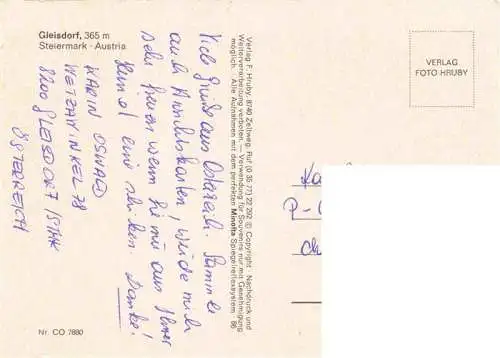 Gleisdorf, 365 m
Steiermark - Austria
Viele Grüße aus Österreich. Sammle
auch Ansichtskarten, würde mich
sehr freuen wenn Sie mir aus Ihrer
Heimat eine schicken. Danke!
KARIN OSWALD
WETZAWINKEL 78
8200 GLEISDORF/STMK
ÖSTERREICH
Verlag F. Hruby, 8740 Zeltweg, Ruf (0 35 77) 22 292 © Copyright · Nachdruck und
Weiterverarbeitung verboten. — Verwendung für Souvenirs nur mit Genehmigung
möglich. · Alle Aufnahmen mit dem perfekten Minolta Spiegelreflexsystem 86
VERLAG
FOTO HRUBY
Nr. CO 7880